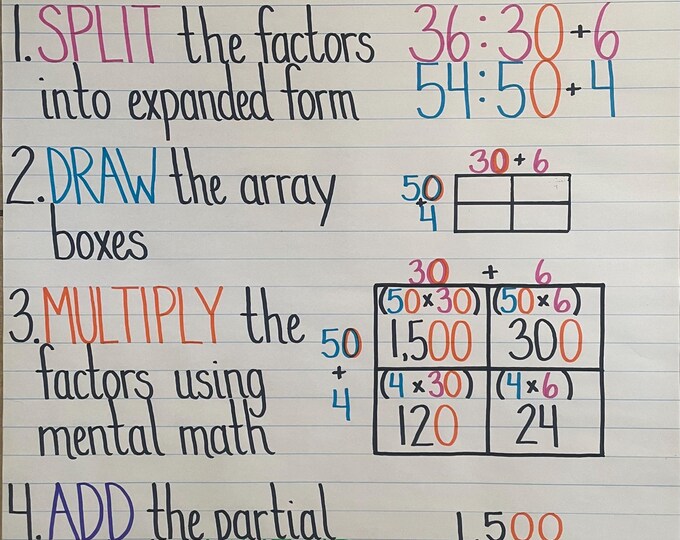 1. SPLIT the factors
into expanded form
36:30+6
54:50+4
2. DRAW the array
boxes
30+6
50
+
4
3. MULTIPLY the
factors using
mental math
30 + 6
50
+
4
(50×30) (50×6)
1,500 300
(4×30) (4×6)
120 24
4. ADD the partial
1,500